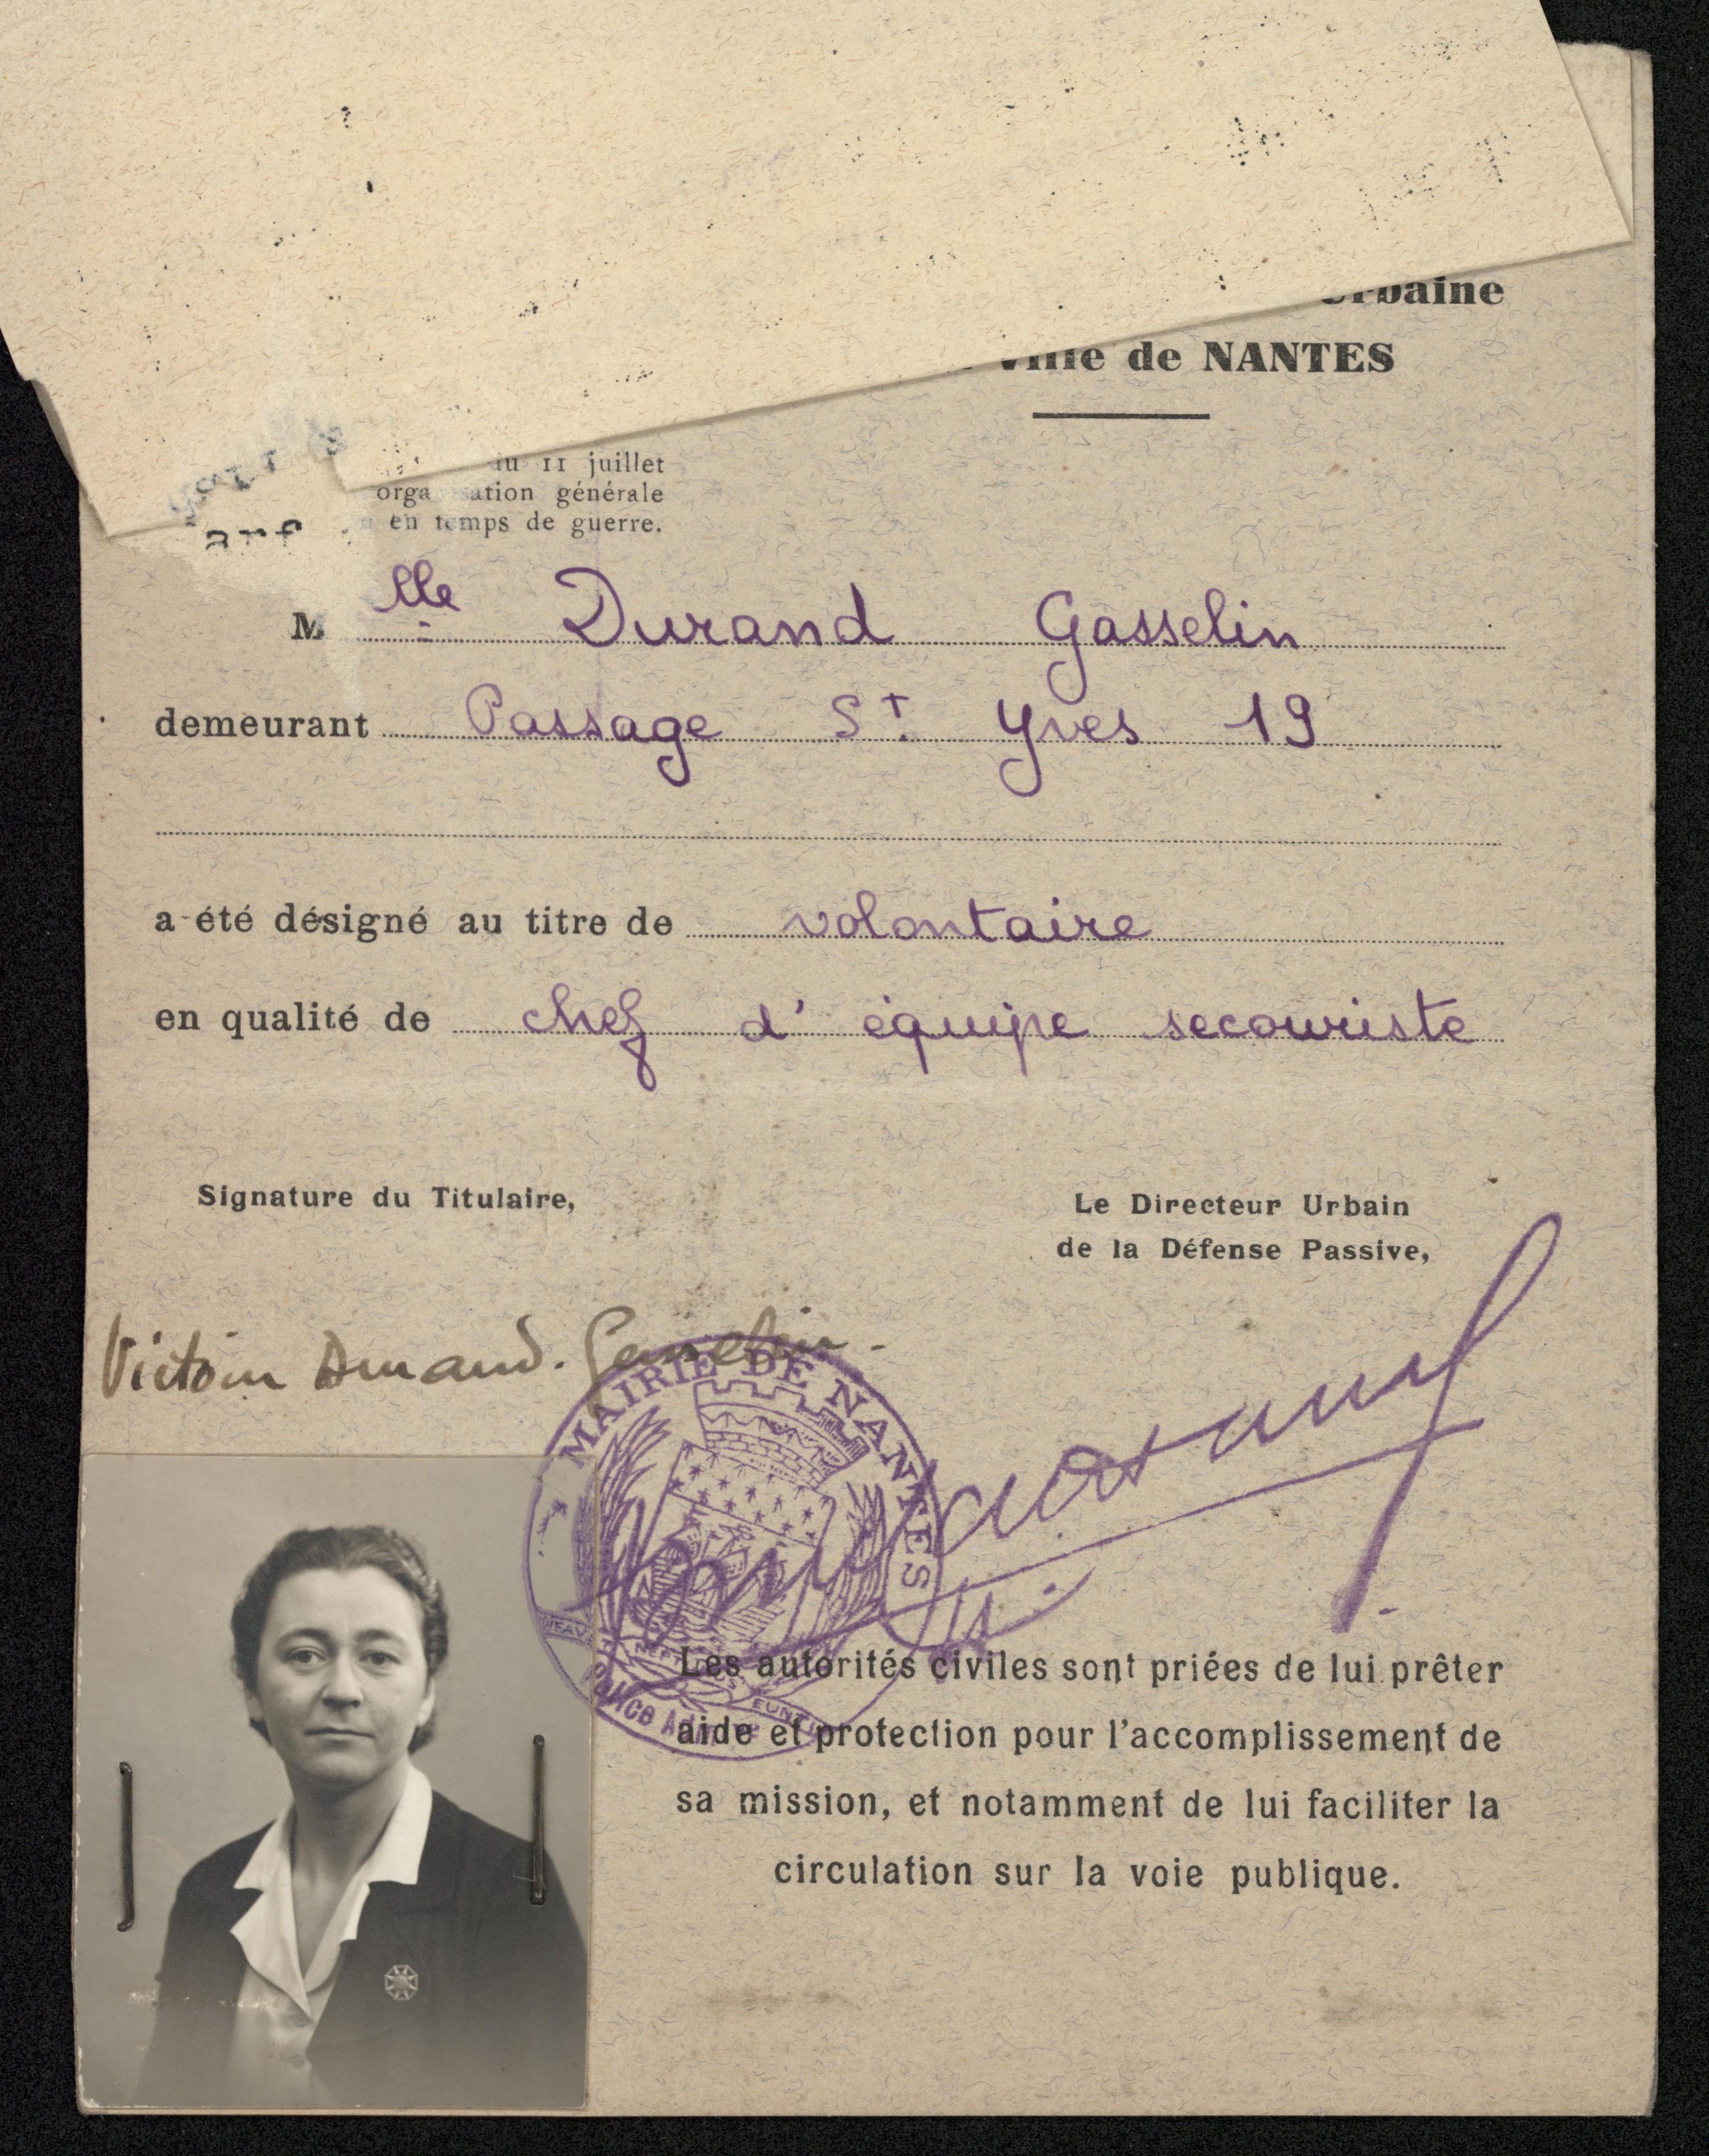 Urbaine
Ville de NANTES
du 11 juillet
organisation générale
en temps de guerre.
Mlle Durand Gasselin
demeurant Passage St Yves 19
a été désigné au titre de volontaire
en qualité de chef d'équipe secouriste
Signature du Titulaire,
Le Directeur Urbain
de la Défense Passive,
Durand-Gasselin
MAIRIE DE NANTES
Les autorités civiles sont priées de lui prêter
aide et protection pour l'accomplissement de
sa mission, et notamment de lui faciliter la
circulation sur la voie publique.